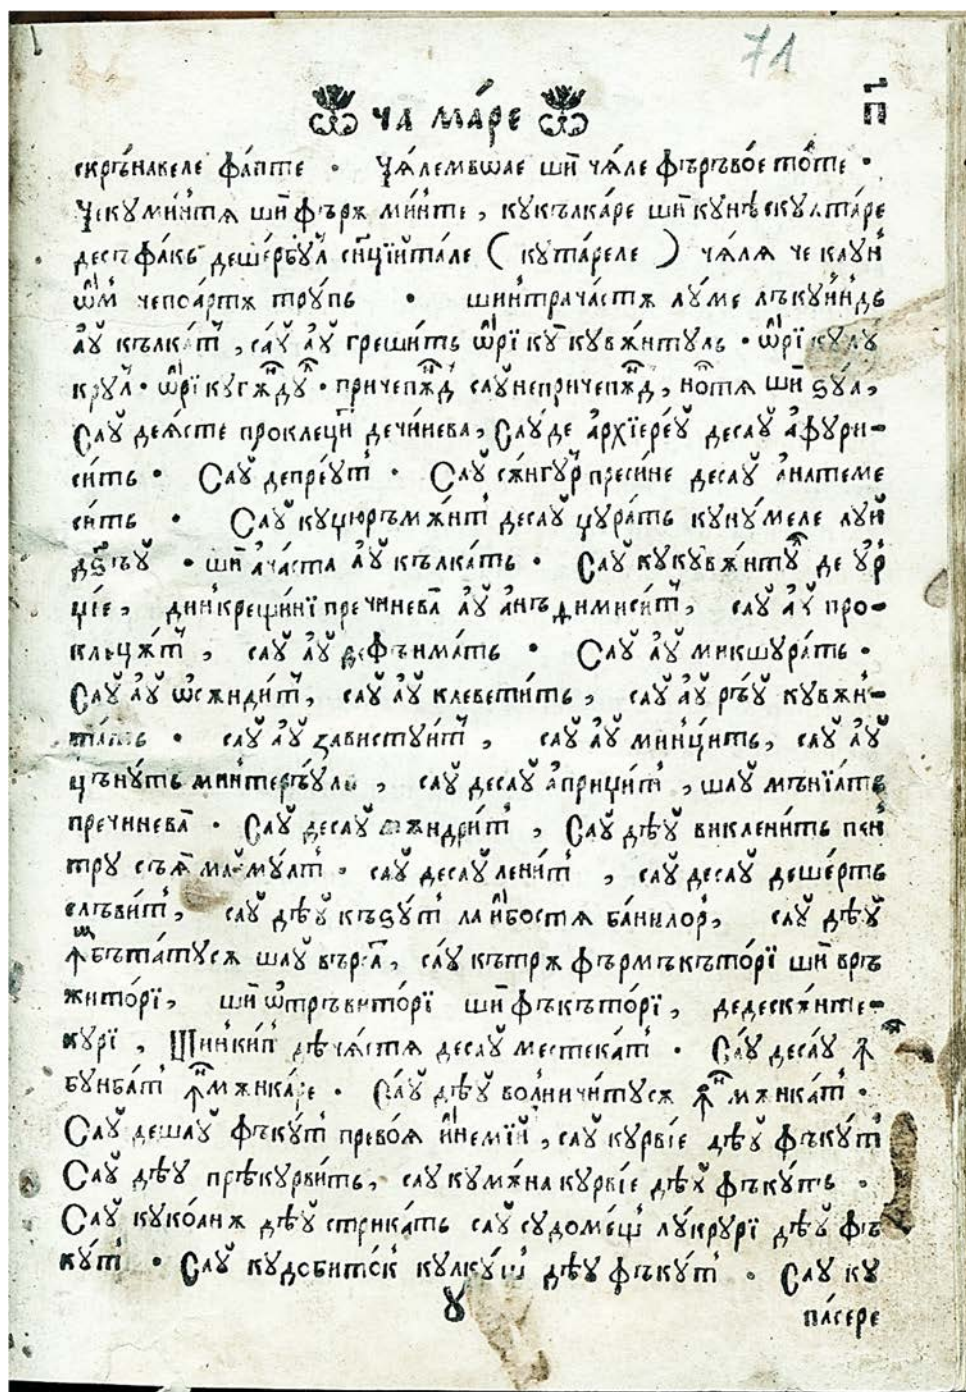 71
ЧА МА́РЕ
п҃
скрънавеле фа́пте · Чѧ́лемвѡае шӥ чѧ́ле фъръво́е то́те ·
Чекуми́нтѧ шӥ фъръ ми́нте, кукълка́ре шӥ кунѣскулта́ре
десъфа́кь деше́рбул сн҃цїйта́ле ( кута́реле ) чѧ́лѧ че каун
ѡ҆м чепоа́ртѫ тру́пь · шинтрача́стѫ лу́ме лъкуи́ндь
а́ꙋ кълка́т, са́ꙋ а́ꙋ греши́ть ѡ҆рї кꙋ кувѫ́нтуль · ѡ҆рї кулꙋ́
крул · ѡ҆рї кугѫ́ндꙋл · причепѫ́нд саꙋнепричепѫ́нд, но́птѧ шӥ ѕꙋа,
Саꙋ деѧ́сте проклеций дечи́нева, Са́ꙋде а҆рхїере́ꙋ десаꙋ а҆фури-
си́ть · Саꙋ депре́ут · Саꙋ сѫ́нгур преси́не десаꙋ а҆натеме
си́ть · Саꙋ куцюръмѫ́нт десаꙋ џура́ть куну́меле луй
дм҃ѕъꙋ · шӥ а҆ча́ста а҆ꙋ кълка́ть · Саꙋ кукувѫ́нтꙋл де ꙋ҆р
џіе, динкрещи́нї пречинева а҆ꙋ а҆нъдимиси́т, саꙋ а҆ꙋ про-
клъцѫ́т, саꙋ а҆ꙋ дефъима́ть · Саꙋ а҆ꙋ микшура́ть ·
Саꙋ а҆ꙋ ѡ҆сѫнди́т, саꙋ а҆ꙋ клевети́ть, саꙋ а҆ꙋ ръ́ꙋ кувѫн-
та́ть · саꙋ а҆ꙋ завистуи́т, саꙋ а҆ꙋ минци́ть, саꙋ а҆ꙋ
цъну́ть минтеръ́ꙋль, саꙋ десаꙋ а҆прици́т, шаꙋ мънїа́ть
пречинева · Саꙋ десаꙋ мѫндри́т, Саꙋ дѣꙋ виклени́ть пен
тру съѧ май мꙋ́лт · саꙋ десаꙋ лени́т, саꙋ десаꙋ деше́рть
слъви́т, саꙋ дѣꙋ къѕу́т ла и҆бостѧ ба́нилор, саꙋ дѣꙋ
ꙟбъта́тусѫ шаꙋ въръса, са́ꙋ кътрѫ фърмъкъто́рї шӥ връ
жито́рї, шӥ ѡ҆тръвито́рї шӥ фъкъто́рї, дедескѫ́нте-
курї, Шинки́п дѣчѧ́стѧ десаꙋ местека́т · Са́ꙋ деса́ꙋ ꙟ
бунба́т ꙟмѫнка́ре · Са́ꙋ дѣꙋ волничи́тусѫ ꙟмѫнка́т ·
Саꙋ дешаꙋ фъку́т прево́ѧ и҆немїй, саꙋ курві́е дѣꙋ фъку́т
Саꙋ дѣꙋ прѣкурви́ть, саꙋ кумѫ́на курві́е дѣꙋ фъку́ть ·
Саꙋ куко́лнѫ дѣꙋ стрика́ть саꙋ судоме́щ лу́крурї дѣꙋ фъ
ку́т · Саꙋ кудобито́к кулку́ш дѣꙋ фъку́т · Саꙋ ку
ꙋ
па́сере